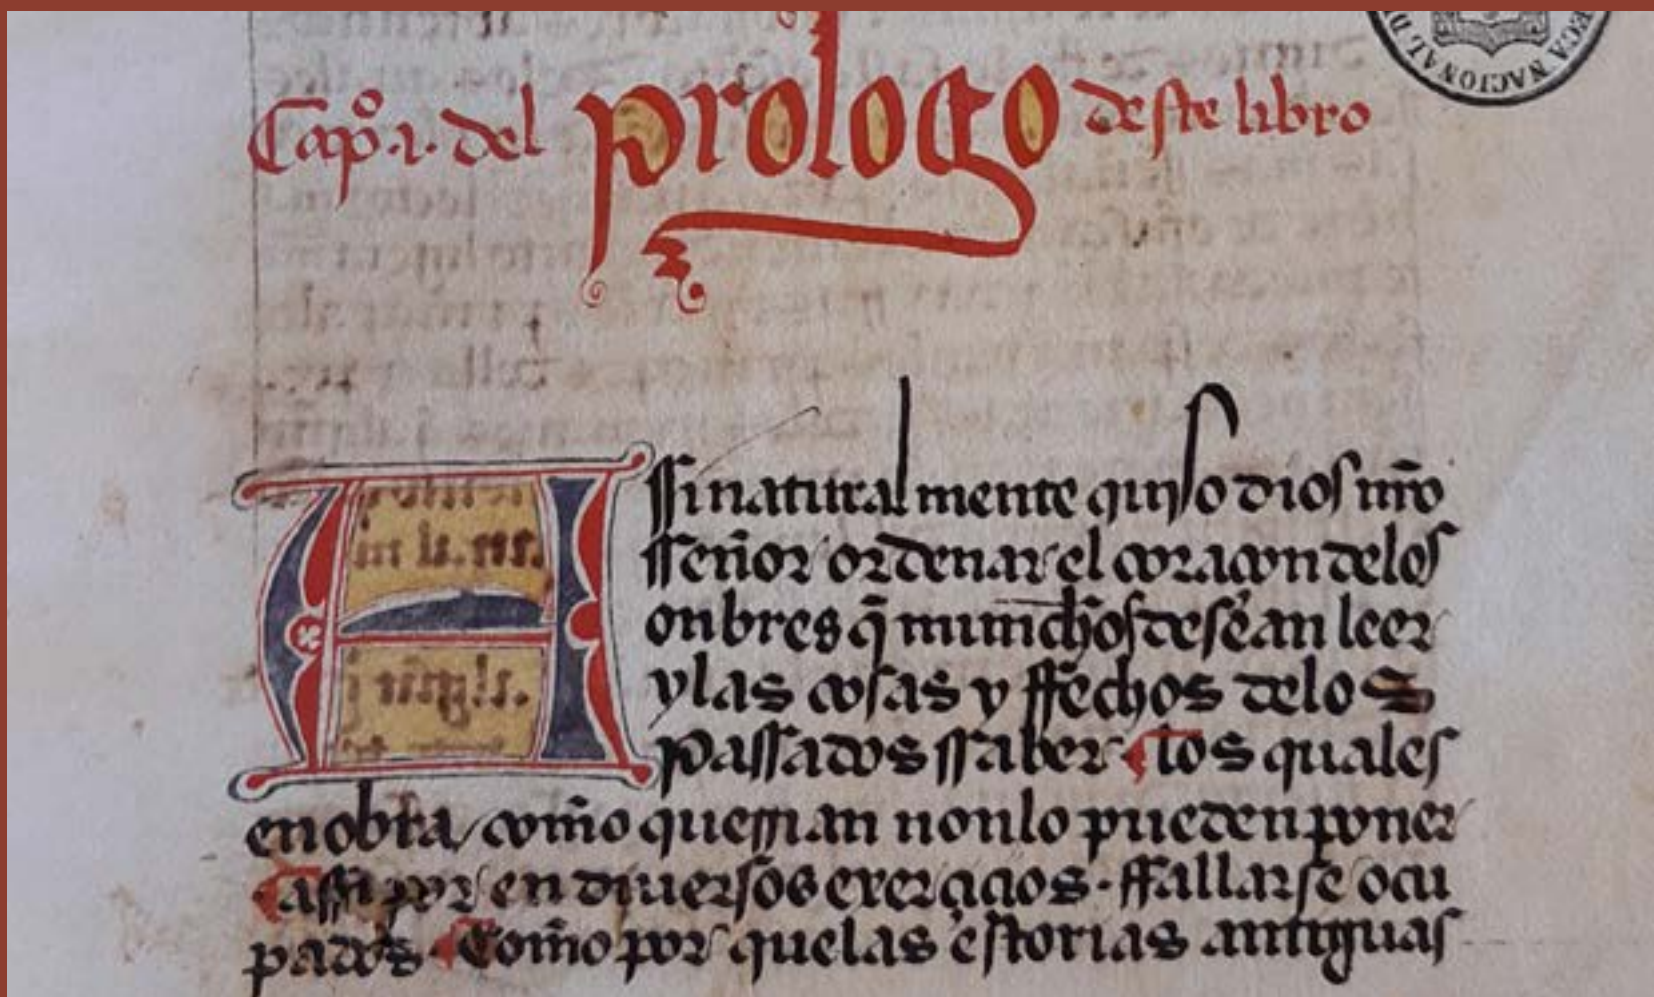 Capº .i. del prologo deste libro
ECA NACIONAL D
Assi natural mente quiso dios nr̃o
sseñor ordenar el coraçon delos
onbres q̃ munchos desean leer
y las cosas y ffechos delos
passados ssaber los quales
en obra com̃o querrian non lo pueden poner
assi por en diuersos exerçiçios · ffallarse ocu
pados · Com̃o por que las estorias antiguas